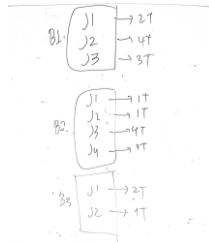 B1. J1 → 2T
J2 → 4T
J3 → 3T
B2. J1 → 1T
J2 → 1T
J3 → 4T
J4 →
B3 J1 → 2T
J2 → 1T